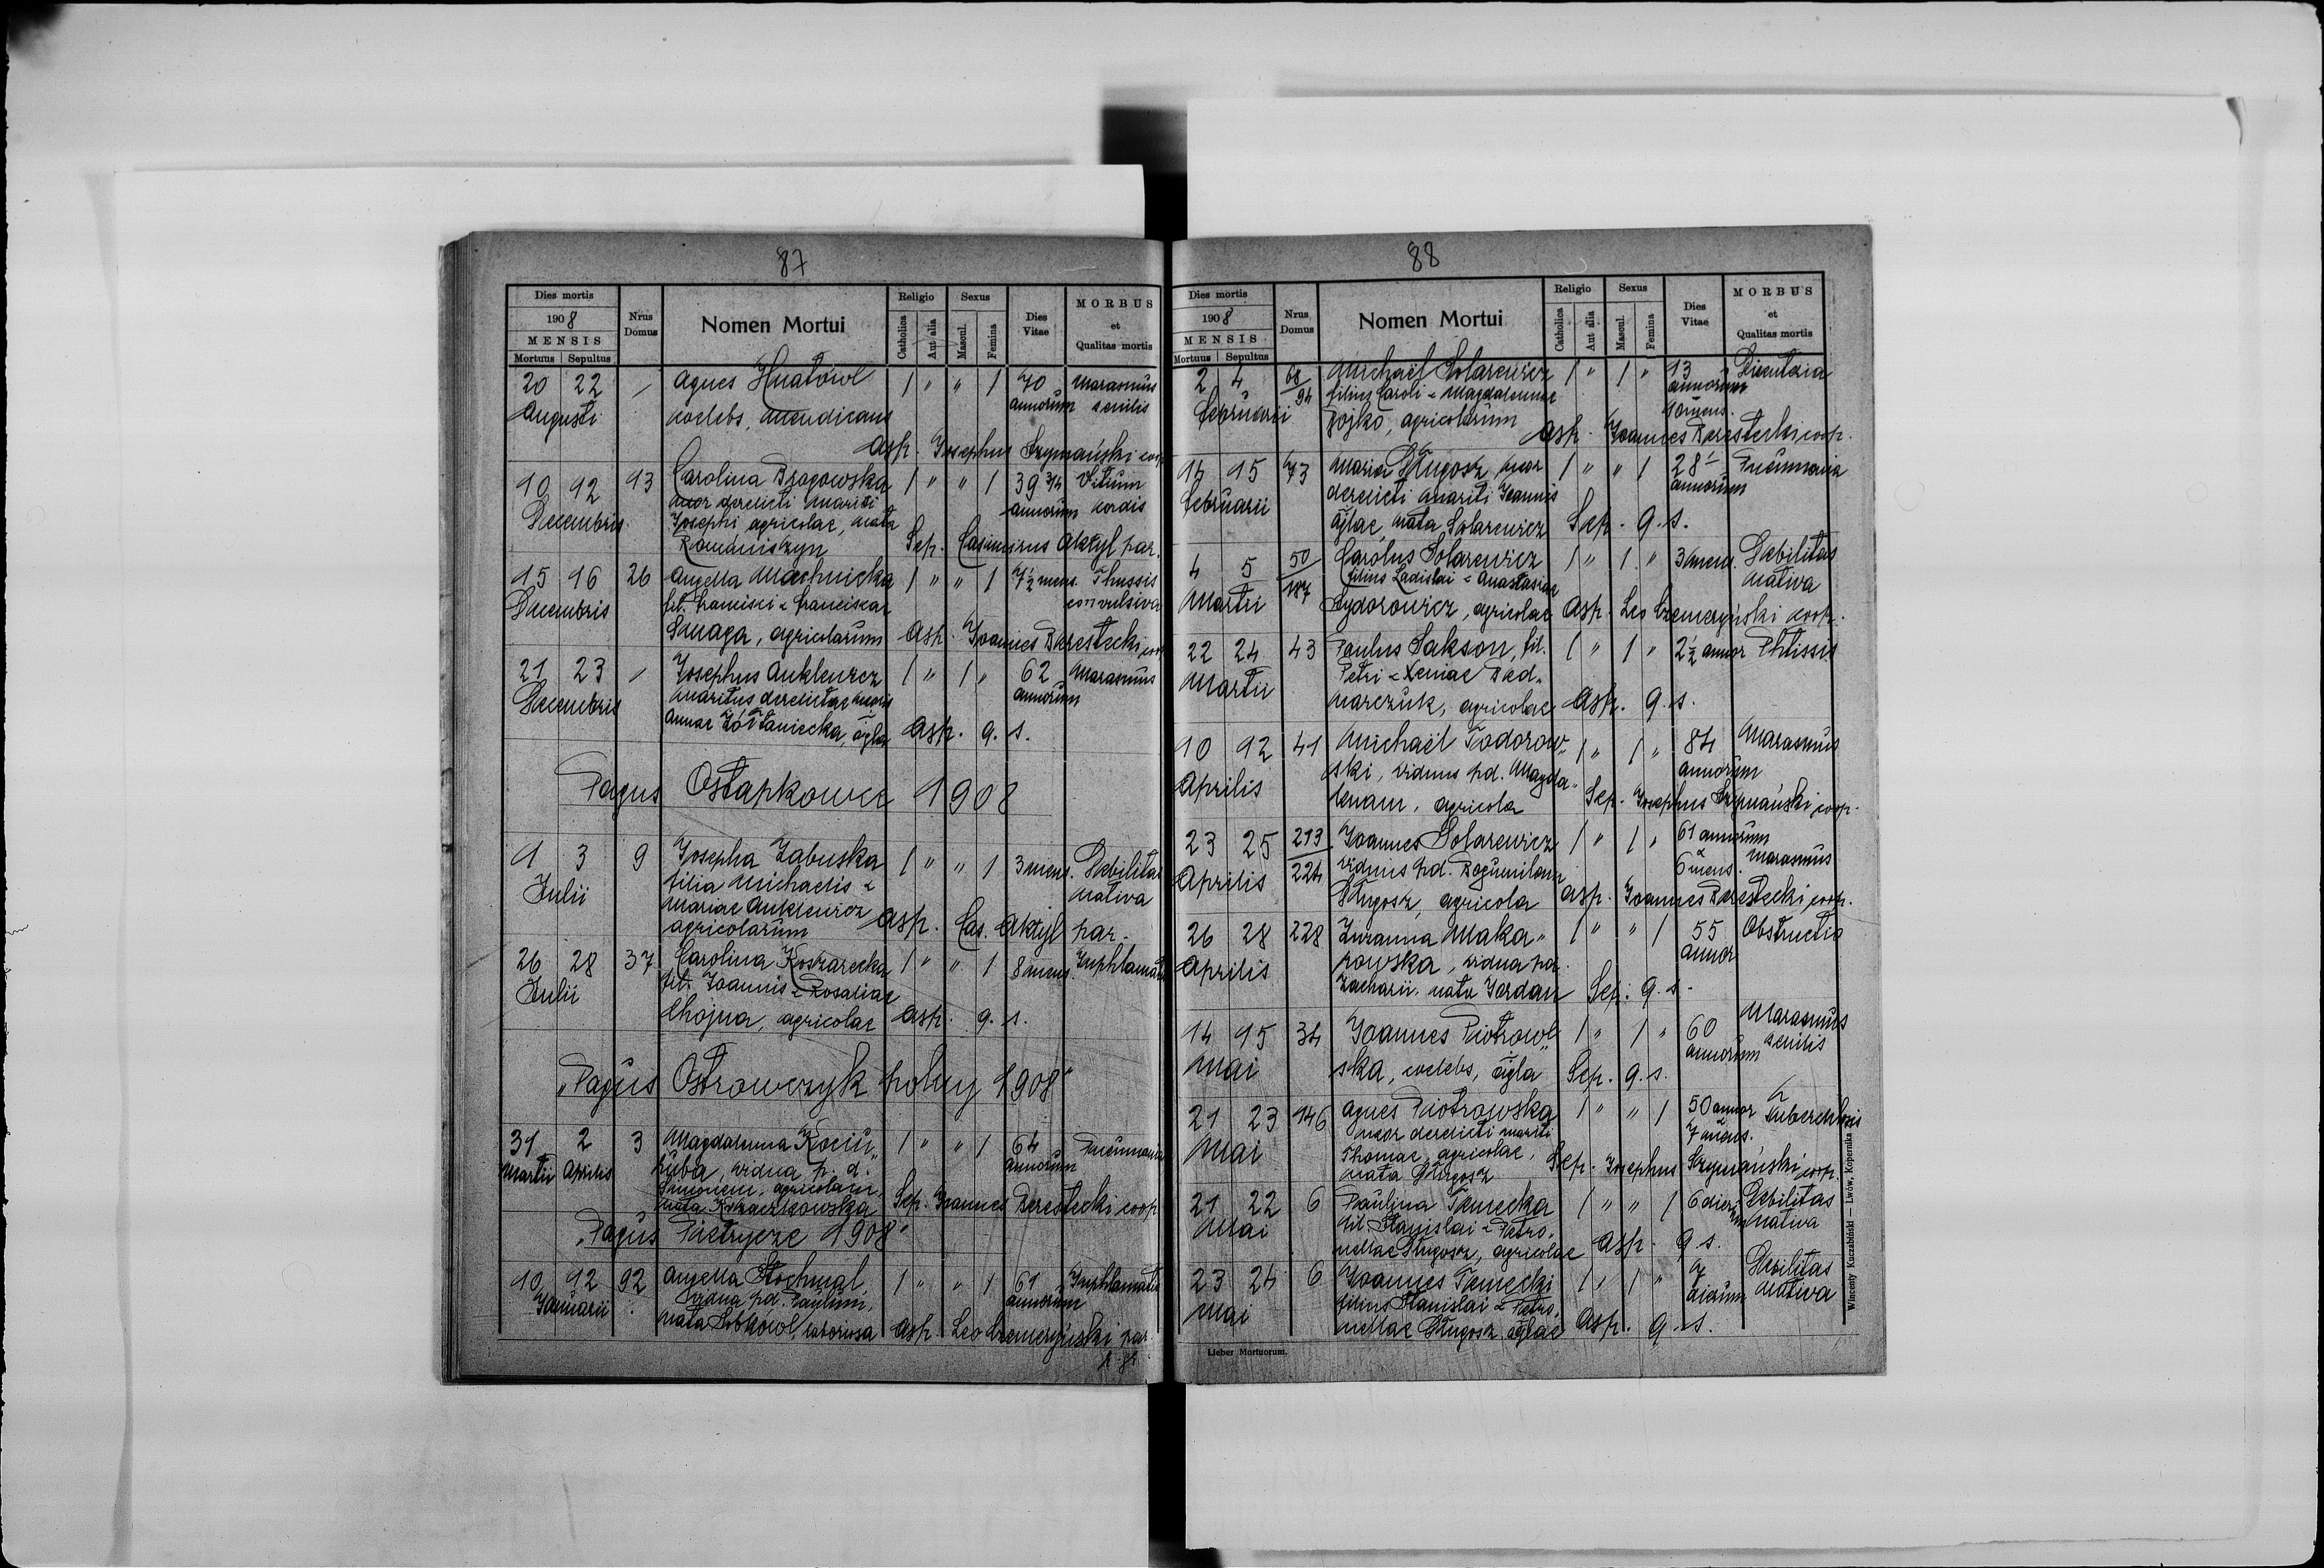 87
Dies mortis
1908
MENSIS
Mortuus Sepultus
Nrus Domus
Nomen Mortui
Religio
Catholica
Aut alia
Sexus
Mascul.
Femina
Dies Vitae
MORBUS
et
Qualitas mortis
20 22 / Agnes Hnatów 1 " " 1 70 Marasmus
Augusti coelebs, mendicans annorum senilis
Asp. Josephus Szymański coop
10 12 13 Carolina Brogowska 1 " " 1 39 3/4 Vitium
Decembris uxor derelicti mariti annorum cordis
Josephi agricolae, nata
Romaniszyn Sep. Casimirus Aktyl par.
15 16 26 Angella Machnicka 1 " " 1 7 1/2 mens. Thussis
Decembris fil. Francisci & Franciscae convulsiva
Smaga, agricolarum Asp. Joannes Berestecki coop
21 23 / Josephus Ankiewicz 1 " 1 " 62 Marasmus
Decembris maritus derelictae uxoris annorum
Annae Żółtaniecka, agla Asp. q. s.
Pagus Ostapkowce 1908
1 3 9 Josepha Zabuska 1 " " 1 3 mens. Debilitas
Julii filia Michaelis & nativa
Mariae Ankiewicz
agricolarum Asp. Cas. Aktyl par.
26 28 37 Carolina Koszarecka 1 " " 1 8 mens. Inphlamatio
Julii fil. Joannis & Rosaliae
Chojna, agricolae Asp. q. s.
"Pagus Ostrowczyk polny 1908"
31 2 3 Magdalena Kociu" 1 " " 1 64 Pneumonia
Martii Aprilis buba, vidua p. d. annorum
Simonem, agricolam,
nata Sep. Joannes Berestecki coop
"Pagus Pietrycze 1908"
10 12 92 Angella Stochmal 1 " " 1 61 Inphlamatio
Januarii vidua pd. Paulum, annorum
nata laboriosa Asp. Leo Czemeryński par
88
Dies mortis
1908
MENSIS
Mortuus Sepultus
Nrus Domus
Nomen Mortui
Religio
Catholica
Aut alia
Sexus
Mascul.
Femina
Dies Vitae
MORBUS
et
Qualitas mortis
2 4 68/94 Michael Solarewicz 1 " 1 " 13
Februarii filius Caroli & Magdalenae annorum
Bojko, agricolarum 10 mens.
Asp. Joannes Berestecki coop.
14 15 73 Maria Długosz uxor 1 " " 1 28 Pneumonia
Februarii derelicti mariti Joannis annorum
aglae, nata Solarewicz Sep. q. s.
4 5 50/187 Carolus Solarewicz 1 " 1 " 3 mens. Debilitas
Martii filius Ladislai & Anastasiae nativa
Sydorowicz, agricolae Asp. Leo Czemeryński coop.
22 24 43 Paulus Sakson, fil. 1 " 1 " 2 1/2 annor Phtissis
Martii Petri & Xeniae Bed"
narczuk, agricolae Asp. q. s.
10 12 41 Michael Fodorow" 1 " 1 " 84 Marasmus
Aprilis ski, viduus pd. Magda" annorum
lenam, agricola Sep. Josephus Szymański coop.
23 25 213/224 Joannes Solarewicz 1 " 1 " 61 annorum
Aprilis viduus pd. Bogumilam & 6 mens. Marasmus
Długosz, agricola Asp. Joannes Berestecki coop.
26 28 228 Zuzanna Maka" 1 " " 1 55 Obstructio
Aprilis rowska, vidua pd. annor
Zacharii, nata Jordan Sep. q. s.
14 15 34 Joannes Piotrow" 1 " 1 " 60 Marasmus
Mai ska, coelebs, agla annorum senilis
Sep. q. s.
21 23 146 Agnes Piotrowska 1 " " 1 50 annor Tuberculosis
Mai uxor derelicti mariti 7 mens.
Thomae, agricolae,
nata Długosz Sep. Josephus Szymański coop.
21 22 6 Paulina Taniecka 1 " " 1 6 dierum Debilitas
Mai fil. Stanislai & Petro" nativa
nellae Długosz, agricolae Asp. q. s.
23 24 6 Joannes Taniecki 1 " 1 " 7 Debilitas
Mai filius Stanislai & Petro" dierum nativa
nellae Długosz, aglae Asp. q. s.
Lieber Mortuorum.
Wincenty Kuczabiński — Lwów, Kopernika